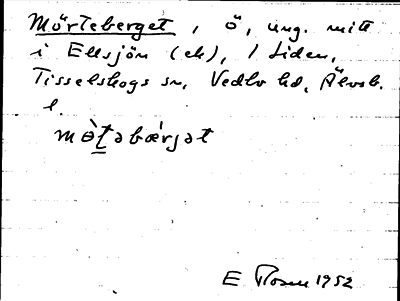 Mörteberget, ö, ung. mitt
i Ellsjön (ek), 1 Liden,
Tisselskogs sn, Vedbo hd, Älvsb.
l.
mø̀ṯəbærjət
E Rosen 1952